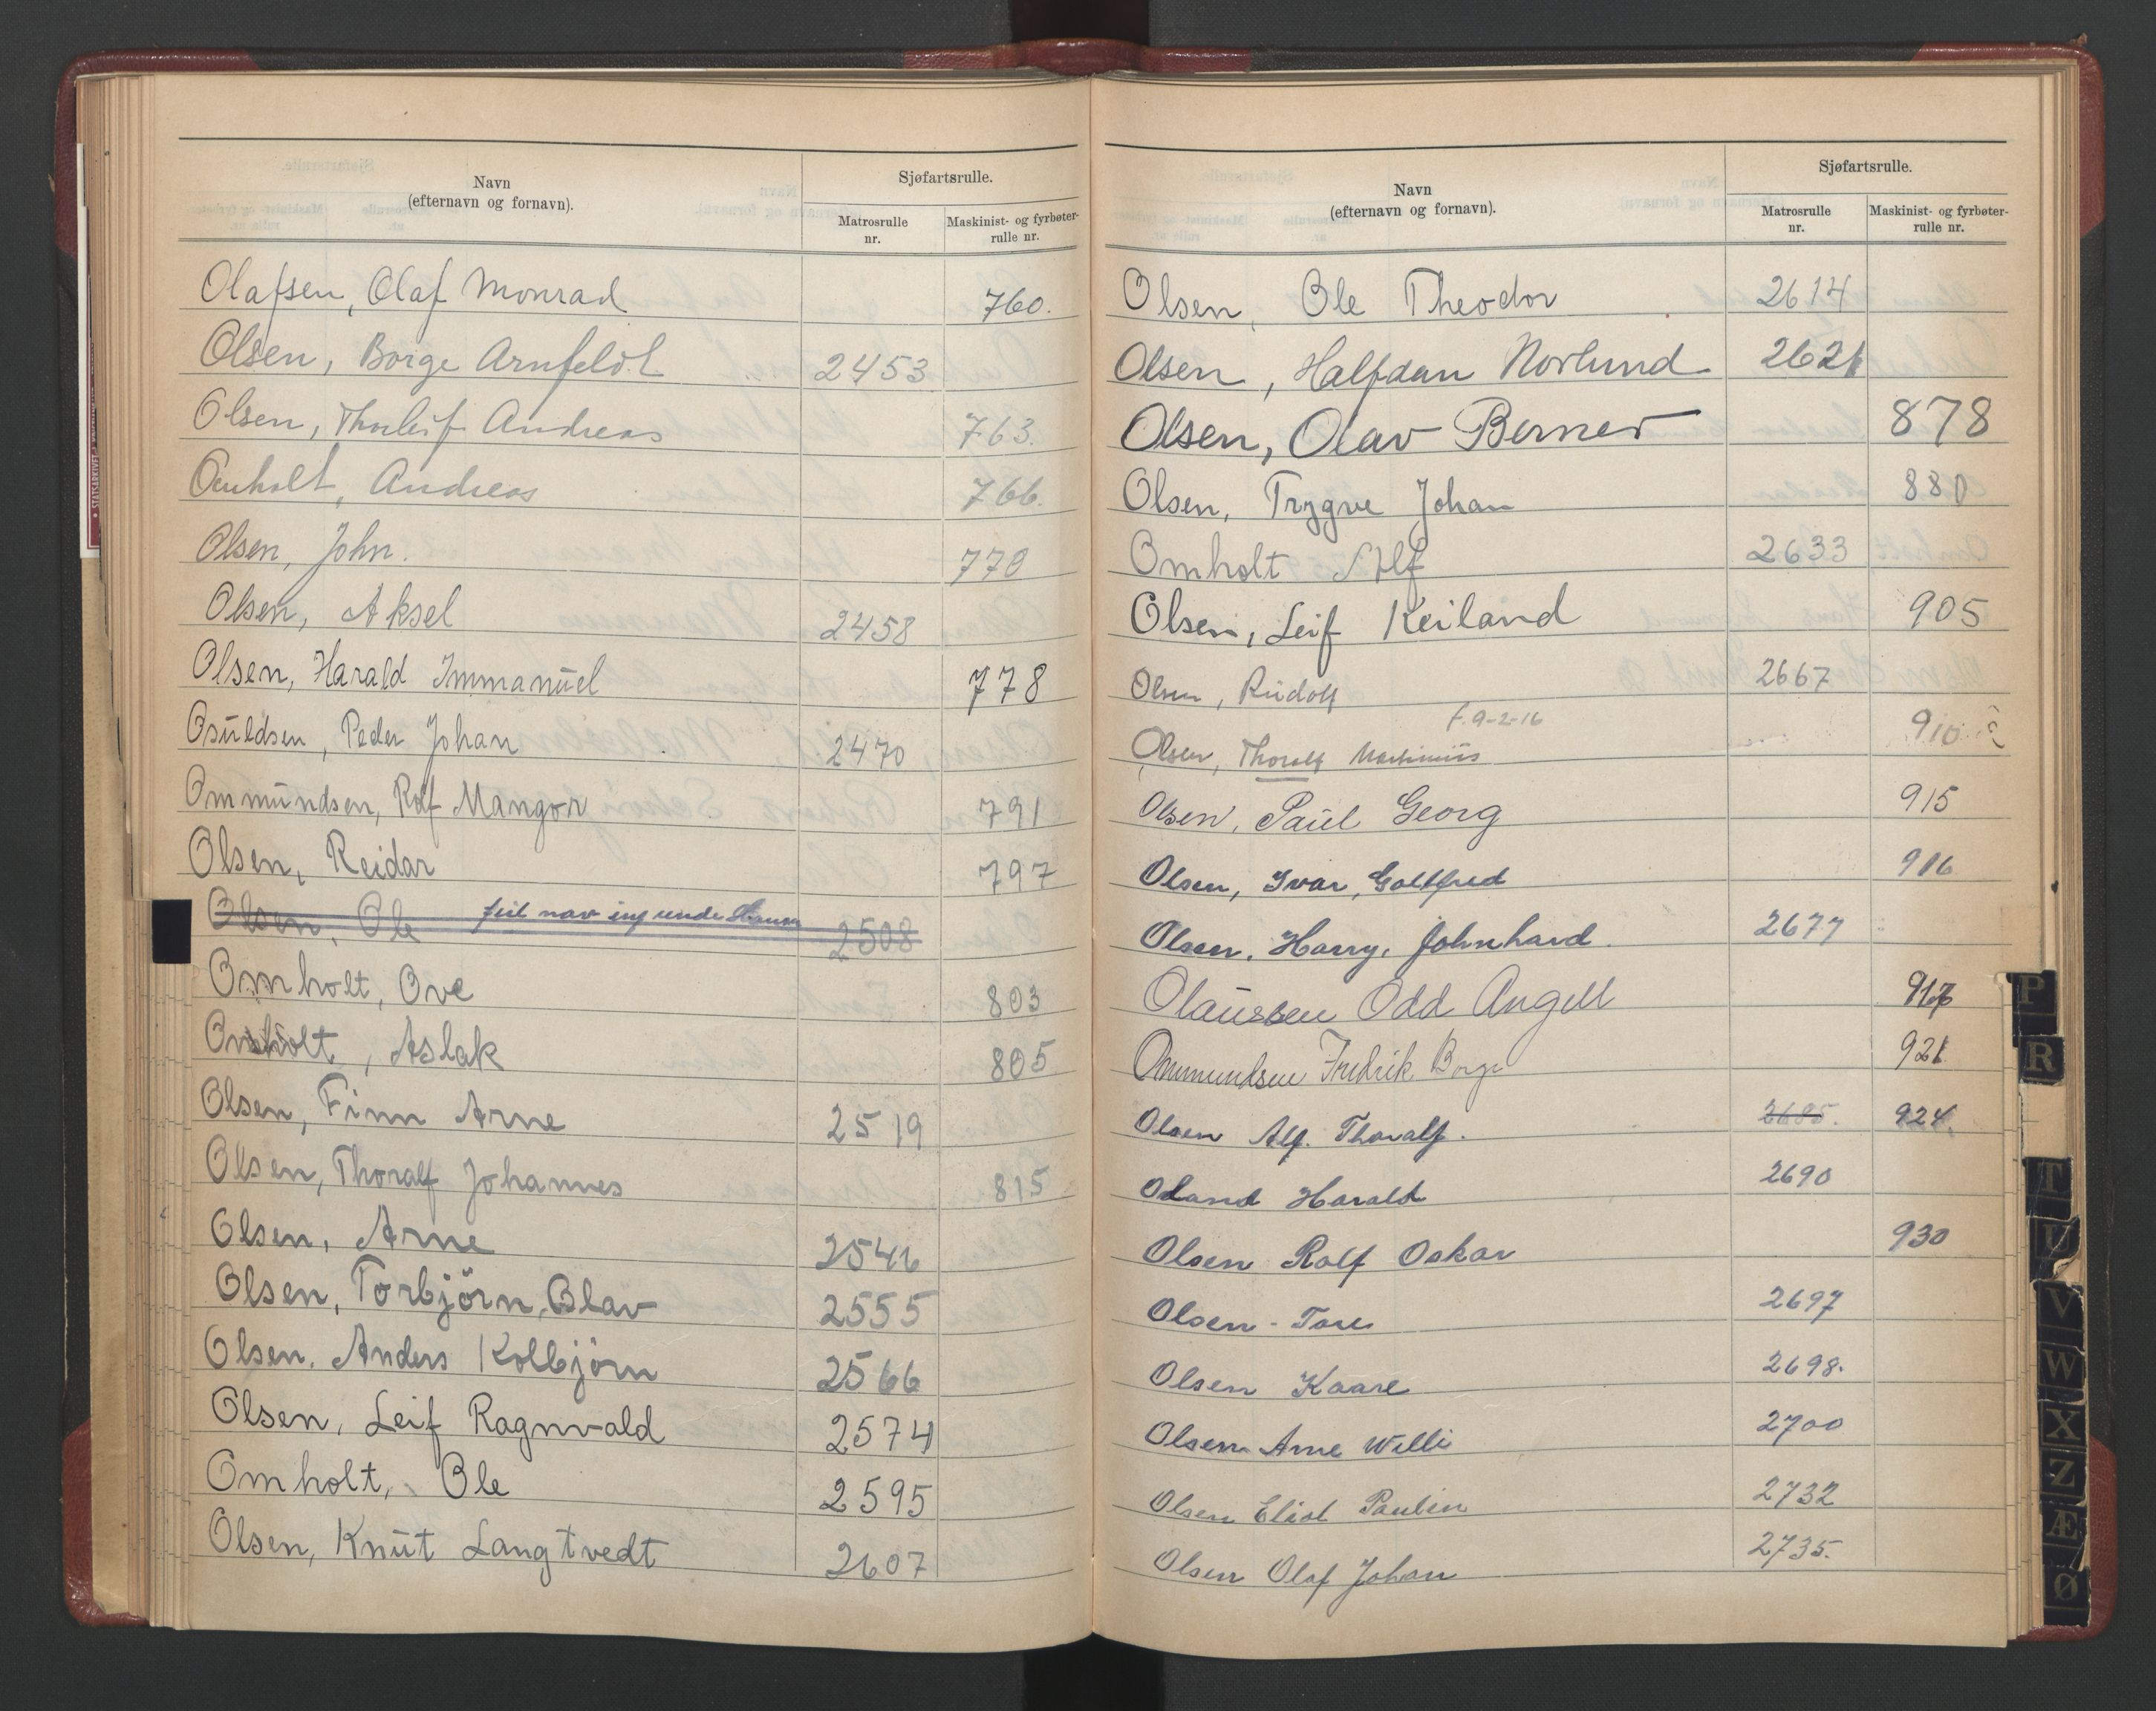 Navn
(efternavn og fornavn).
Sjøfartsrulle.
Matrosrulle nr.
Maskinist- og fyrbøter-rulle nr.
Olafsen, Olaf Monrad 760.
Olsen, Borge Arnfeldt 2453
Olsen, Thorleif Andreas 763.
Omholt, Andreas 766.
Olsen, John. 770
Olsen, Aksel 2458
Olsen, Harald Immanuel 778
Osuldsen, Peder Johan 2470
Ommundsen, Rolf Mangor 791
Olsen, Reidar 797
Olsen, Ole feil nav 2508
Omholt, Ove 803
Omholt, Aslak 805
Olsen, Finn Arne 2519
Olsen, Thoralf Johannes 815
Olsen, Arne 2546
Olsen, Torbjörn Olav 2555
Olsen, Anders Kolbjörn 2566
Olsen, Leif Ragnvald 2574
Omholt, Ole 2595
Olsen, Knut Langtvedt 2607
Navn
(efternavn og fornavn).
Sjøfartsrulle.
Matrosrulle nr.
Maskinist- og fyrbøter-rulle nr.
Olsen, Ole Theodor 2614
Olsen, Halfdan Norlund 2621
Olsen, Olav Berner 878
Olsen, Trygve Johan 880
Omholt Alf 2633
Olsen, Leif Keiland 905
Olsen, Rudolf 2667
f. 9-2-16
Olsen, Thoralf Martinius 910
Olsen, Paul Georg 915
Olsen, Ivar, Gottfred 916
Olsen, Harry, Johnhard. 2677
Olaussen Odd Angell 917
Ommundsen Fredrik Borge 921
Olsen Alf. Thoralf. 2685. 924.
Oland Harald 2690
Olsen Rolf Oskar 930
Olsen - Tore 2697
Olsen Kaare 2698.
Olsen Arne Willi 2700
Olsen Eliot Paulin 2732
Olsen Olaf Johan 2735.
P
R
T
V
W
X
Z
Æ
Ø